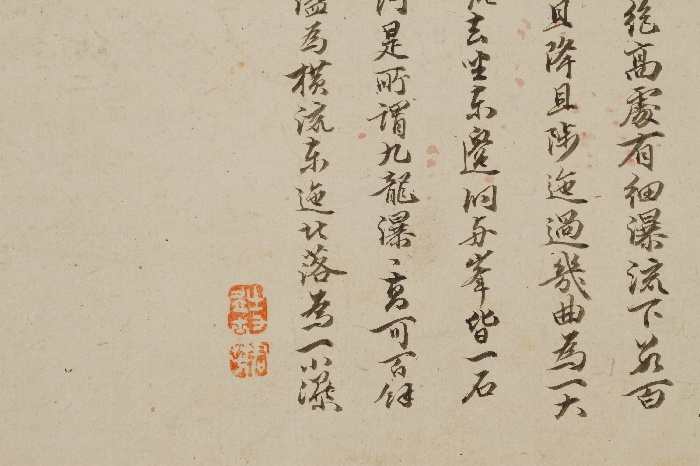 絶高處有細瀑流下若百
且降且陟迤過幾曲為一大
去坐東邊洞與峯皆一石
是所謂九龍瀑〻高可百餘
為橫流東迤北落為一小潭